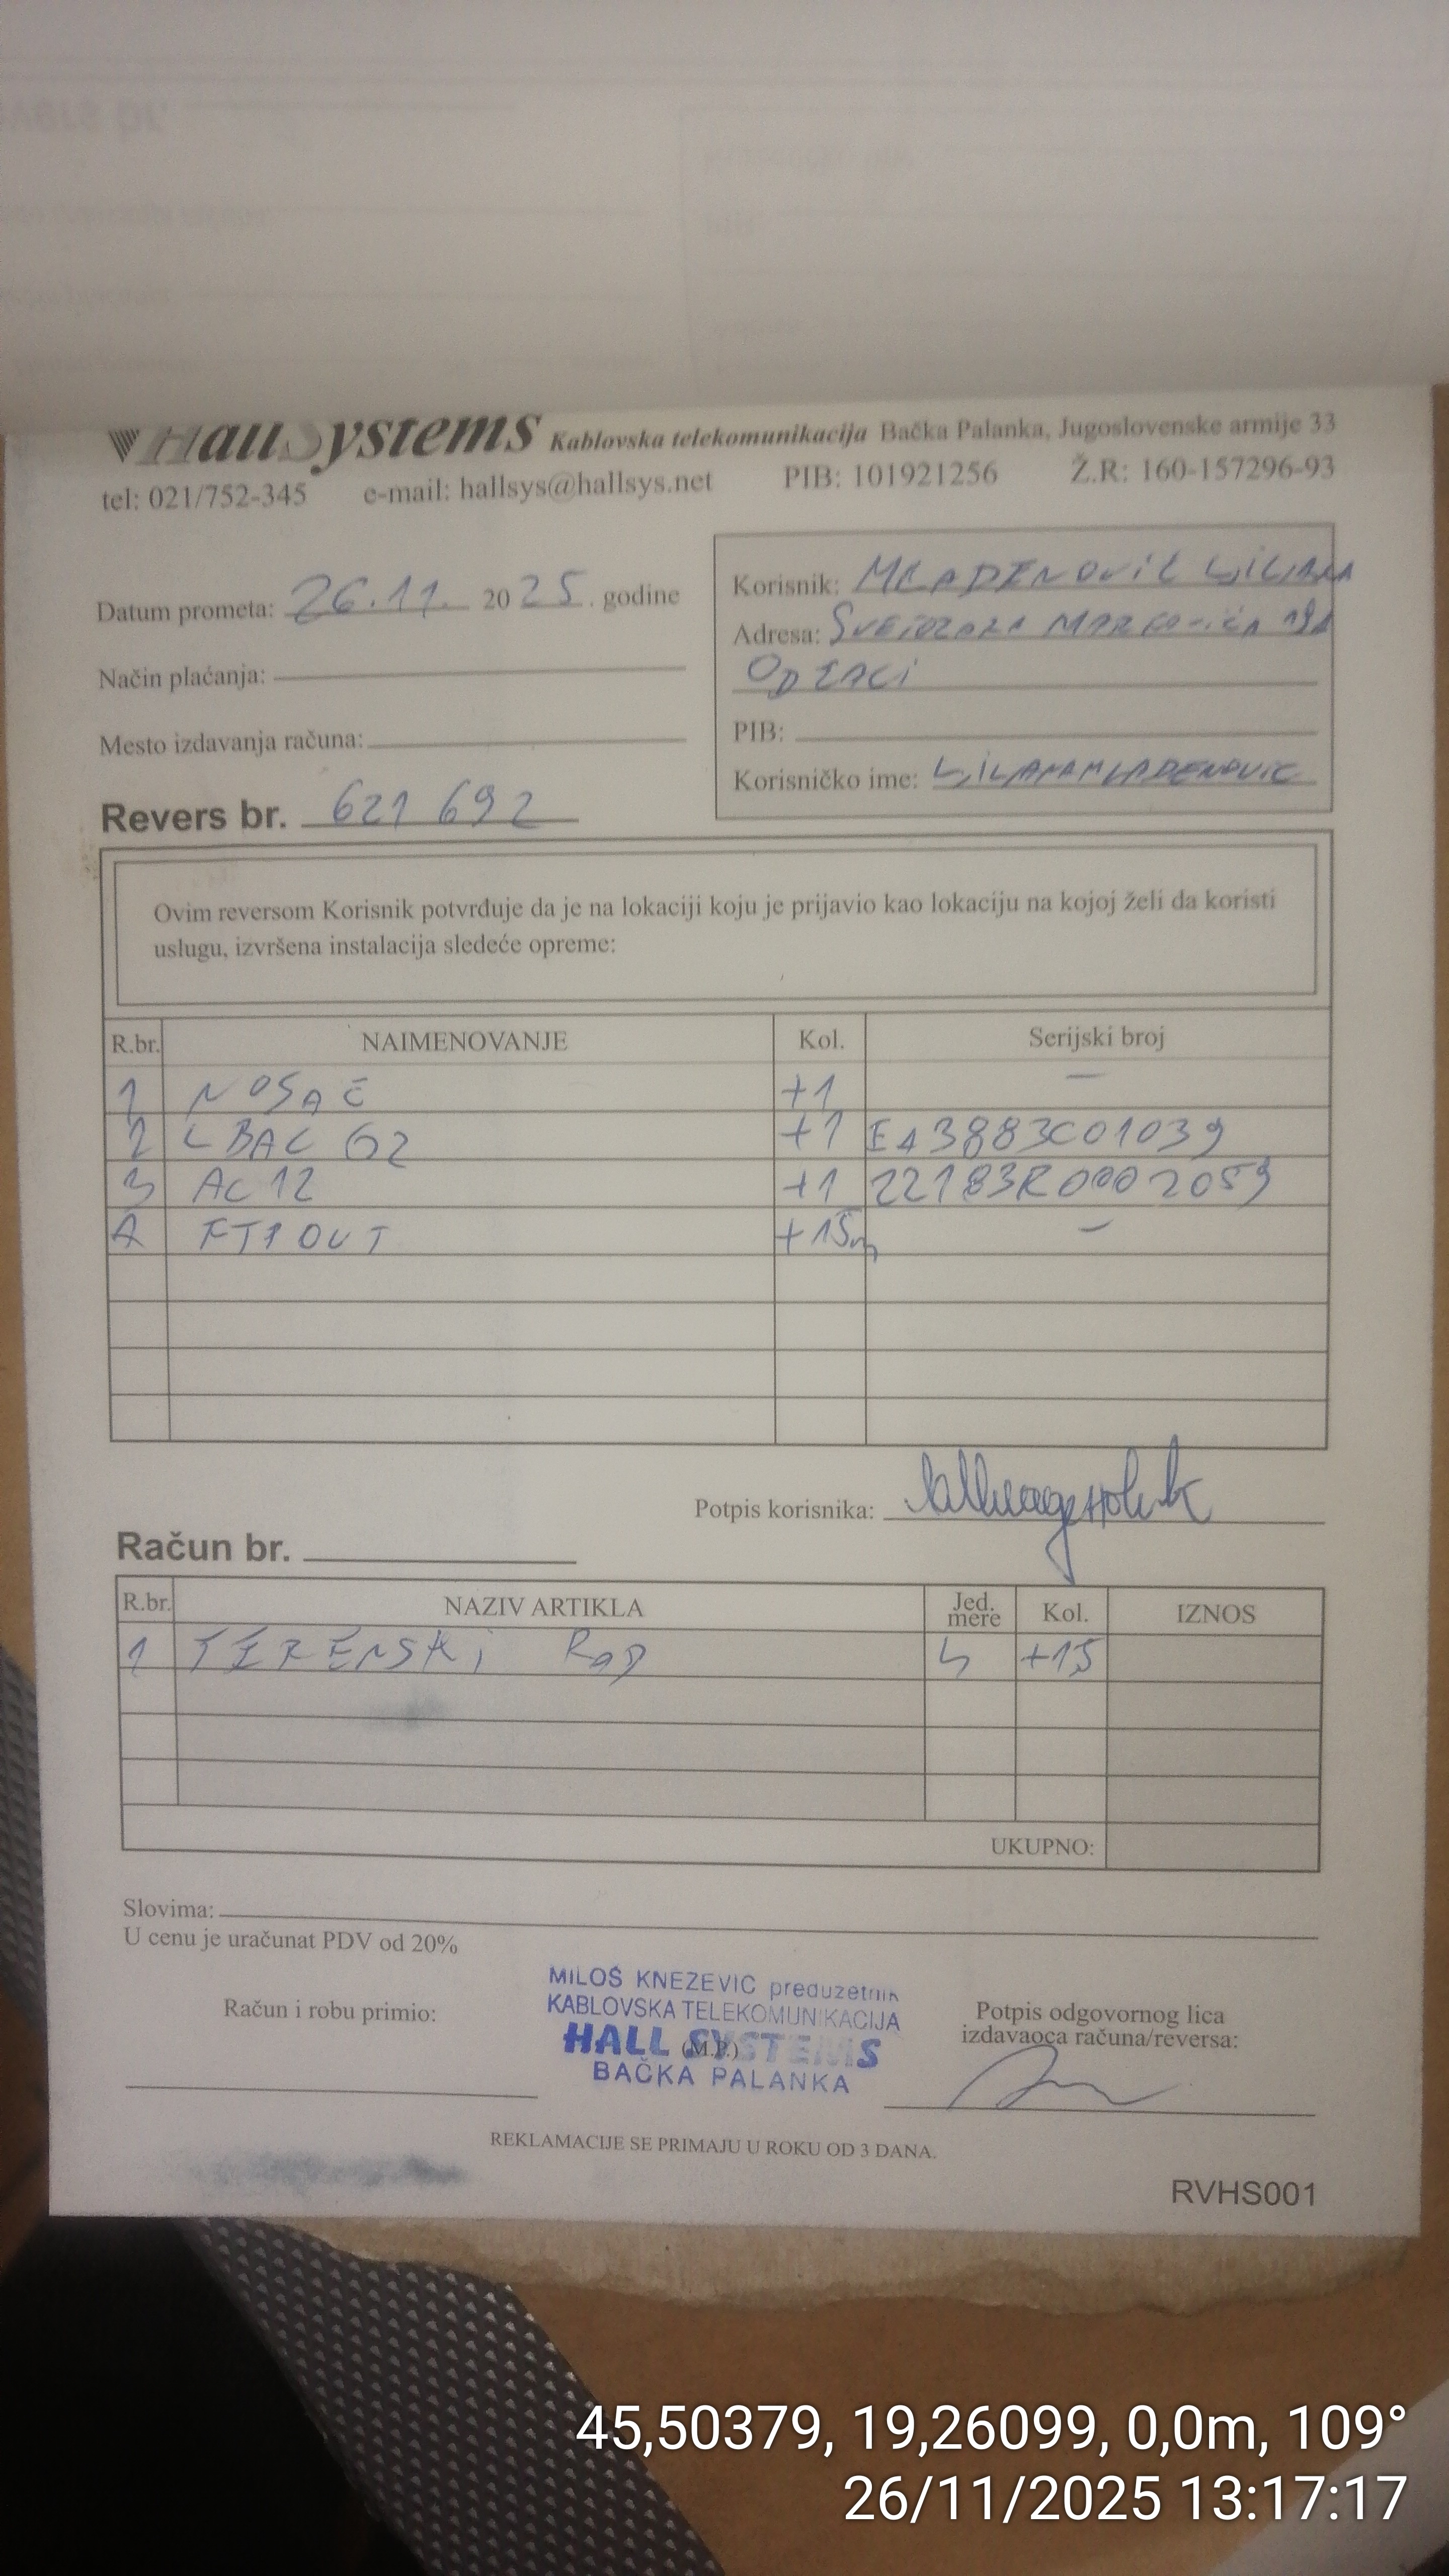 HallSystems Kablovska telekomunikacija Bačka Palanka, Jugoslovenske armije 33
tel: 021/752-345 e-mail: hallsys@hallsys.net PIB: 101921256 Ž.R: 160-157296-93
Datum prometa: 26.11. 2025. godine
Način plaćanja:
Mesto izdavanja računa:
Revers br. 621 692
Korisnik: MLADENOVIĆ LJILJANA
Adresa: SVETOZARA MARKOVIĆA
ODŽACI
PIB:
Korisničko ime: LJILJANAMLADENOVIC
Ovim reversom Korisnik potvrđuje da je na lokaciji koju je prijavio kao lokaciju na kojoj želi da koristi
uslugu, izvršena instalacija sledeće opreme:
R.br. NAIMENOVANJE Kol. Serijski broj
1 NOSAČ +1 –
2 LBAC G2 +1 E43883C01039
3 AC12 +1 22183R0002059
4 FTP OUT +15m –
Potpis korisnika:
Račun br.
R.br. NAZIV ARTIKLA Jed. mere Kol. IZNOS
1 TERENSKI RAD h +1,5
UKUPNO:
Slovima:
U cenu je uračunat PDV od 20%
MILOŠ KNEZEVIC preduzetnik
KABLOVSKA TELEKOMUNIKACIJA
HALL SYSTEMS
(M.P.)
BAČKA PALANKA
Račun i robu primio:
Potpis odgovornog lica
izdavaoca računa/reversa:
REKLAMACIJE SE PRIMAJU U ROKU OD 3 DANA.
RVHS001
45,50379, 19,26099, 0,0m, 109°
26/11/2025 13:17:17